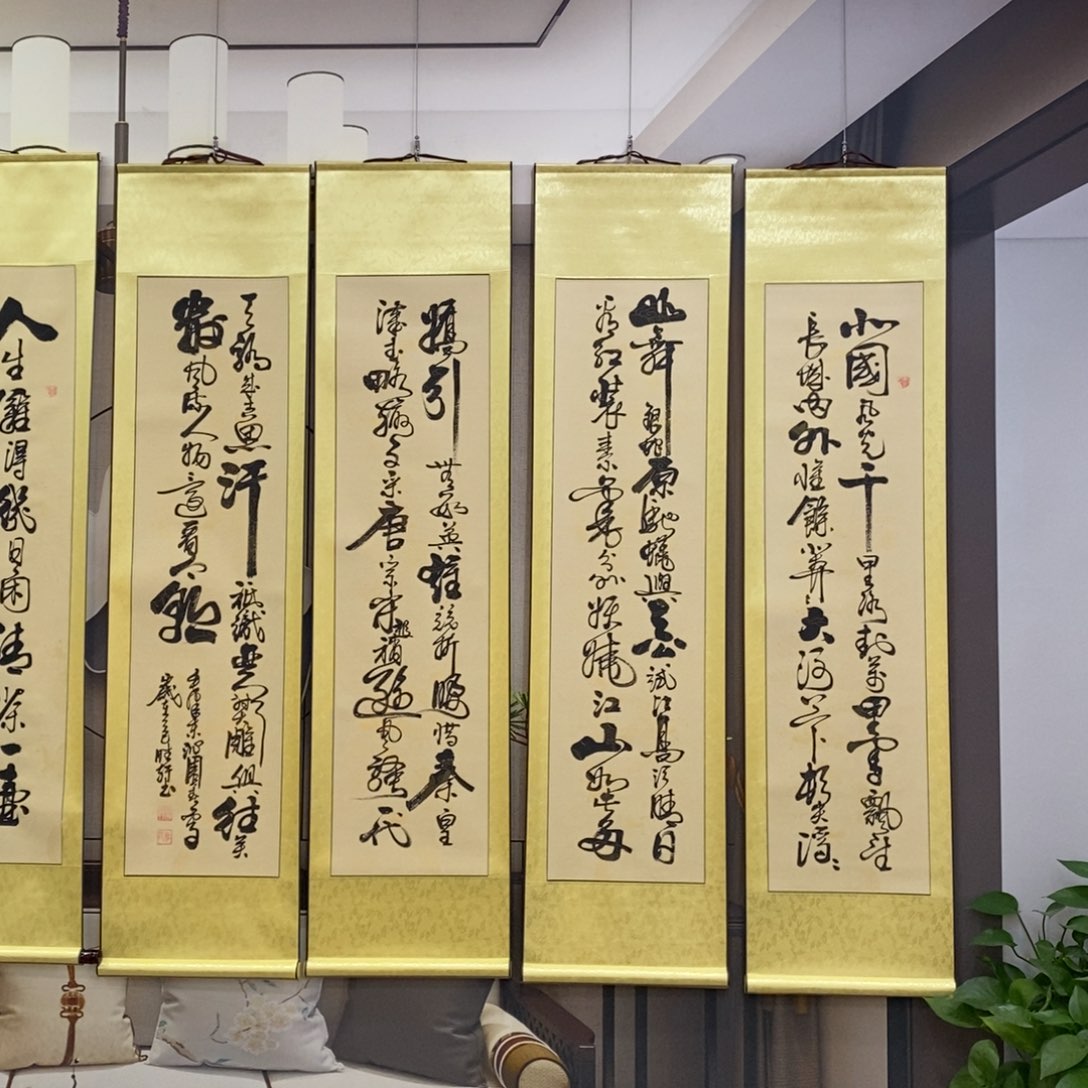 北國風光千里冰封萬里雪飄望
長城內外惟餘莽莽大河上下頓失滔滔
山舞銀蛇原馳蠟與天公試比高須晴日
看紅裝素裹分外妖嬈江山如此多
嬌引無數英雄競折腰惜秦皇
漢武略輸文采唐宗宋祖稍遜風騷一代
天驕成吉思汗祇識彎弓射雕俱往矣
數風流人物還看今朝
毛澤東沁園春雪
人生難得幾日閑清茶一壺